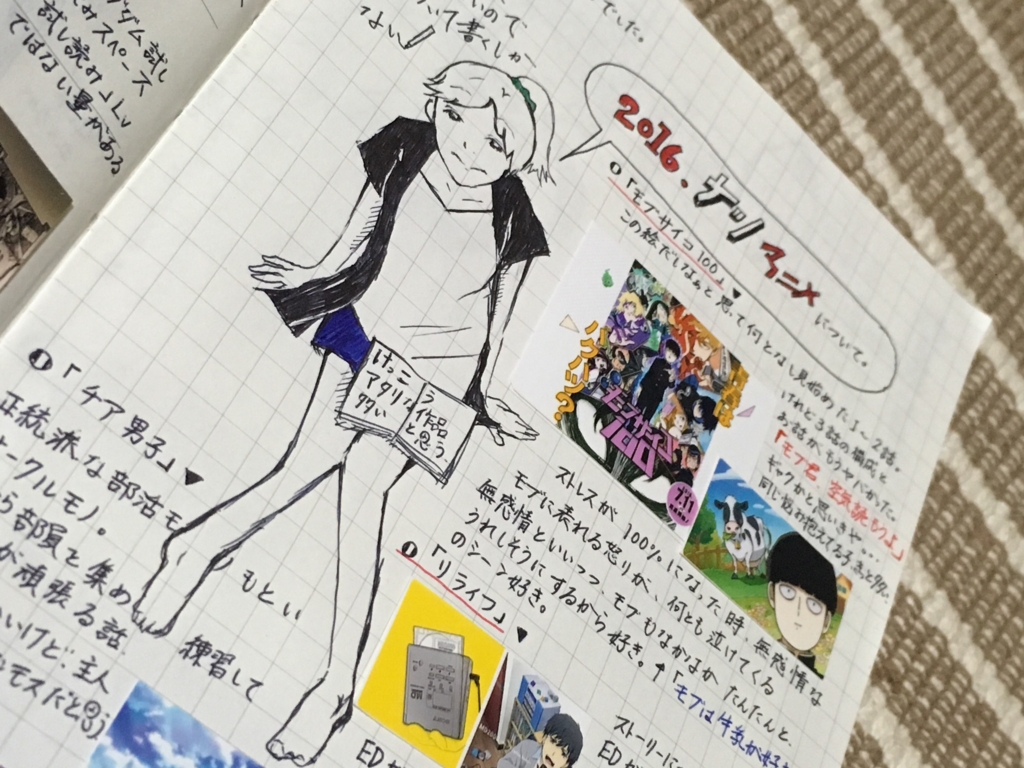 でした。
いて書くしか
ない!
試し読みしv
ではない量がある
2016.ナツアニメについて。
❶「モブサイコ100」▼
この絵でいいなぁと思って何となし見始めた1〜2話。
けれど3話の構成と
お話が、もうヤバかった。
「モブ君 空気読もうよ」
ギャグかと思いきや…
同じ悩み抱えてる子きっと多い。
ハクハツ?
モブサイコ
100
7.11
ストレスが100%になった時、無感情な
モブに表れる怒りが、何とも泣けてくる
無感情といいつつ、モブもなかなか たんたんと、
うれしそうにするから好き。↑「モブは牛乳が好き
のシーン好き。
けっこ
アタリな
タタい
ラ
作品
と思う。
❶「チア男子」▼
正統派な部活モ
ークルモノ。
ら部員を集め
が頑張る話
いけど:主人
もとい
練習して
❶「リライフ」▼
MD
ストーリーに
EDが
EDが